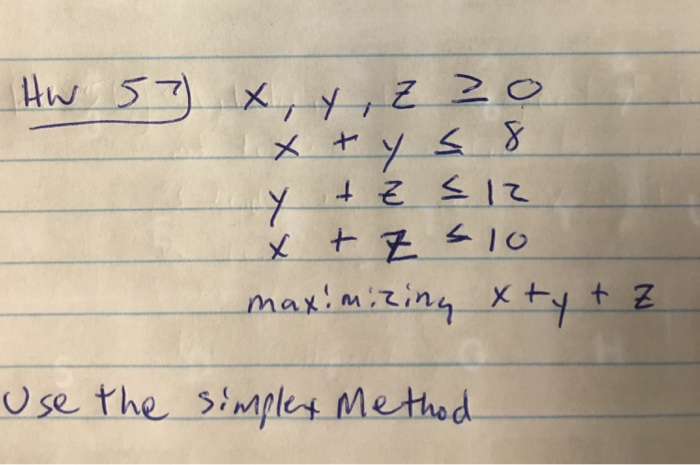 HW 57) x, y, z ≥ 0
x + y ≤ 8
y + z ≤ 12
x + z ≤ 10
maximizing x + y + z
Use the simplex Method